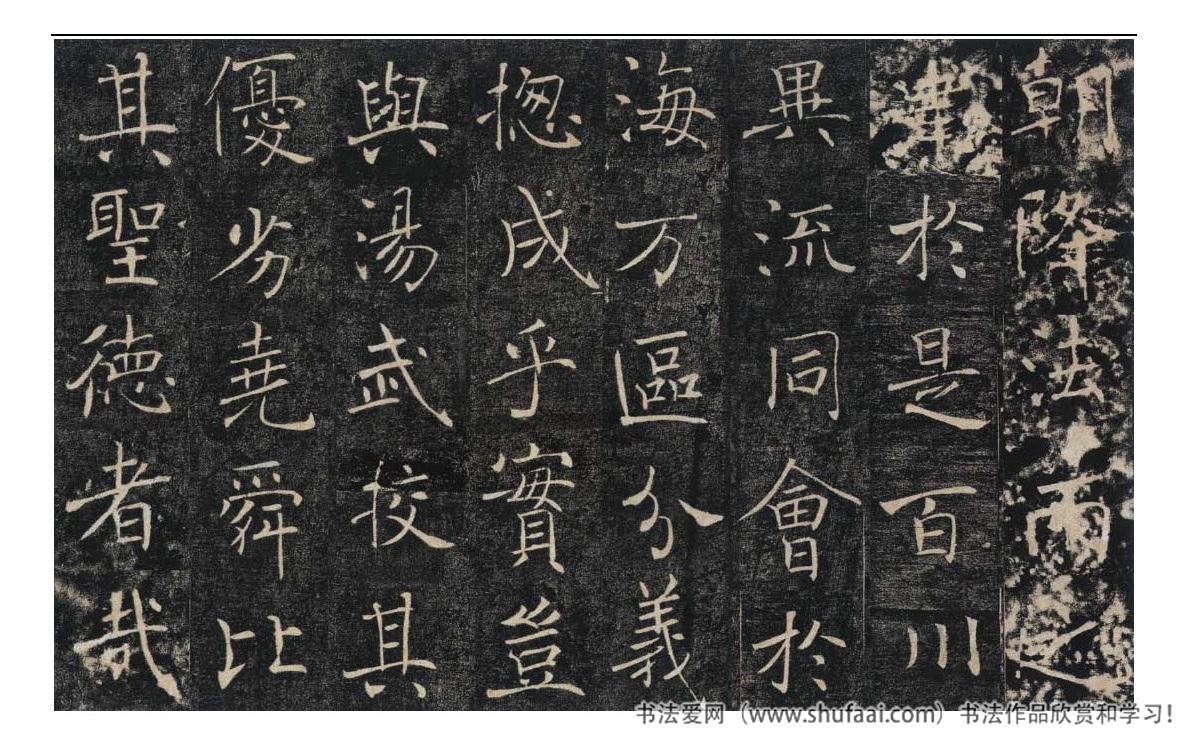 朝降法雨之
津於是百川
異流同會於
海万區分義
揔成乎實豈
與湯武挍其
優劣堯舜比
其聖徳者哉
书法爱网（www.shufaai.com）书法作品欣赏和学习！